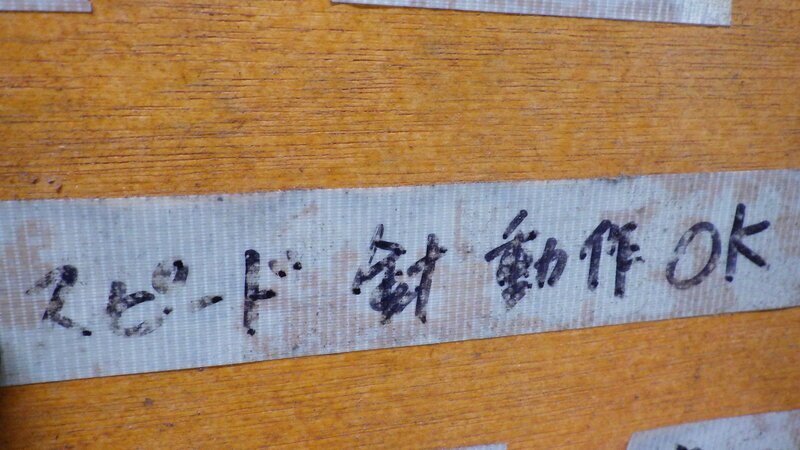 スピード 針 動作 OK